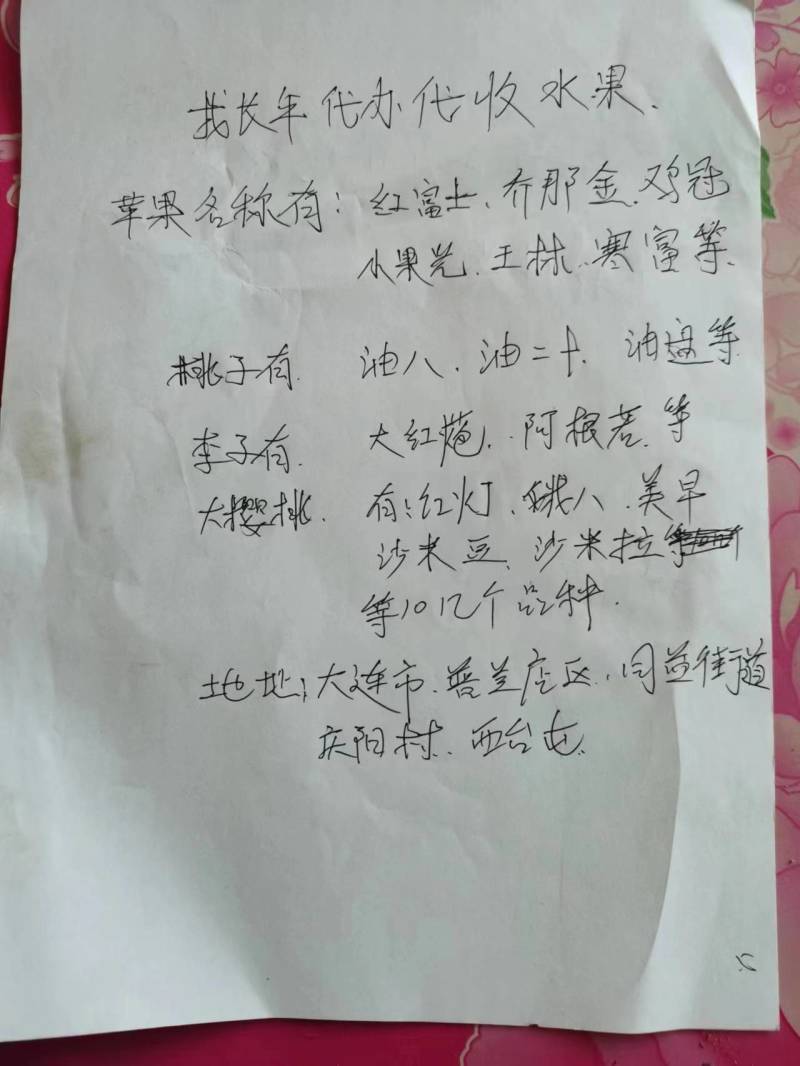 我长年代办代收水果.
苹果名称有：红富士、乔那金、鸡冠
小果光、王林、寒富等、
桃子有、油八、油二十、油盘等
李子有、大红袍、阿根若、等
大樱桃、有：红灯、俄八、美早
沙米豆、沙米拉等
等10几个品种.
地址：大连市、普兰店区、同益街道
庆阳村、西台屯